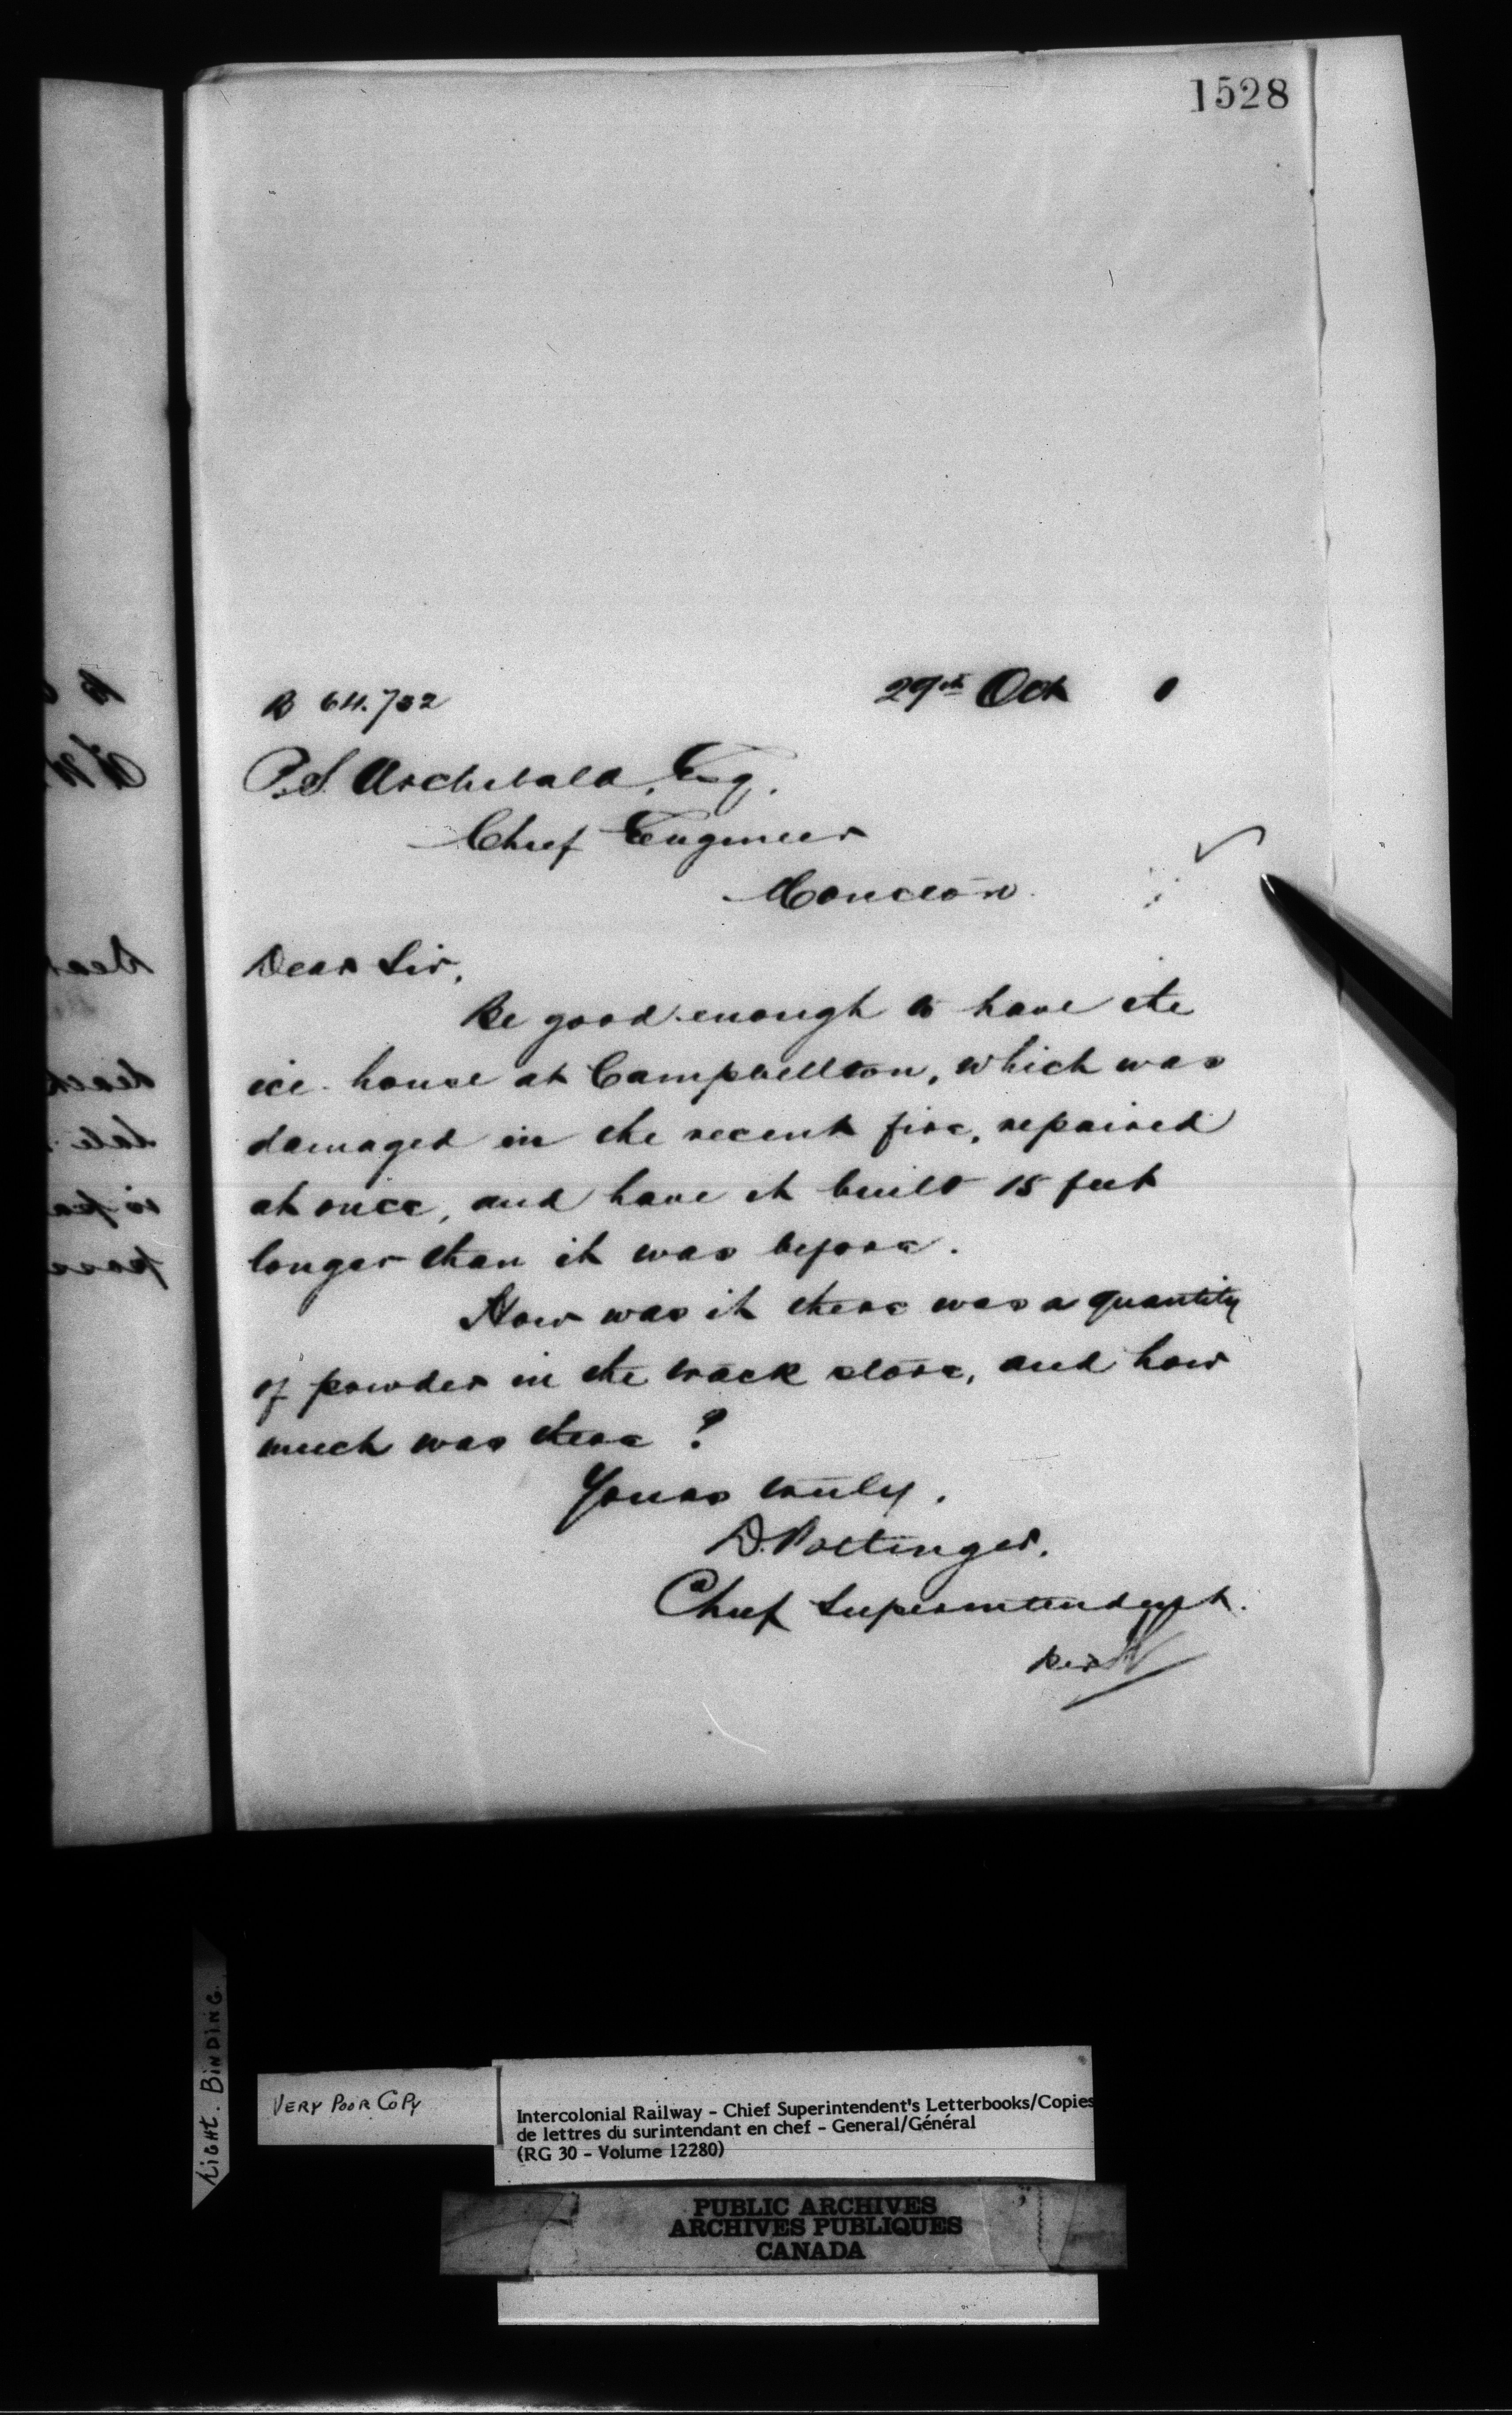 1528
B 64.732
29th Oct 0
P.S. Archibald, Esq.
Chief Engineer
Moncton.
Dear Sir,
Be good enough to have the
ice house at Campbellton, which was
damaged in the recent fire, repaired
at once, and have it built 15 feet
longer than it was before.
How was it there was a quantity
of powder in the track store, and how
much was there?
Yours truly,
D. Pottinger.
Chief Superintendent.
Per
TIGHT BINDING.
VERY POOR COPY
Intercolonial Railway - Chief Superintendent's Letterbooks/Copies
de lettres du surintendant en chef - General/Général
(RG 30 - Volume 12280)
PUBLIC ARCHIVES
ARCHIVES PUBLIQUES
CANADA